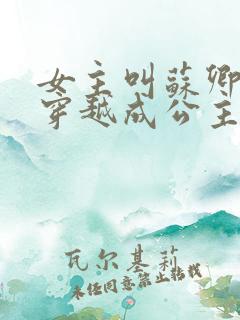 女主叫蘇卿
穿越成公主
瓦尔基莉
未经同意禁止转载